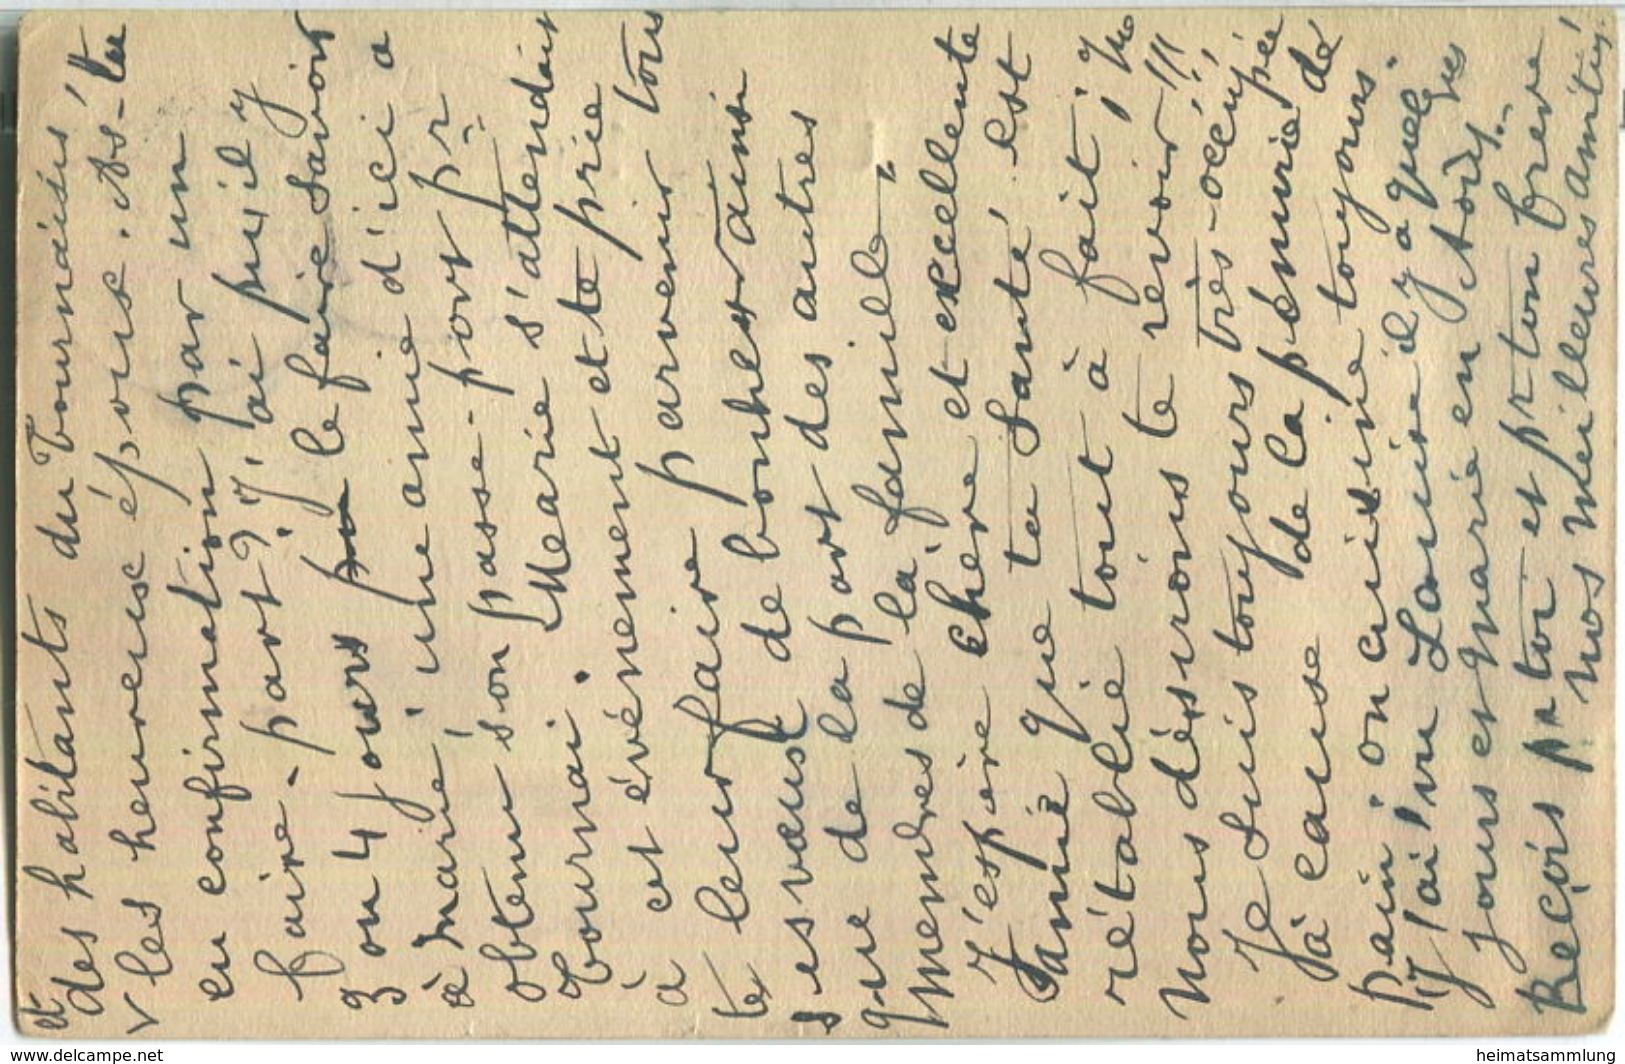 et
des habitants du Tournaisis!
v les heureux époux. As-tu
eu confirmation par un
faire-part? J'ai pu il y
3 ou 4 jours le faire savoir
à Marie; une amie d'ici a
obtenu son passe-port pr
Tournai. Marie s'attendait
à cet événement et te prie
te leur faire parvenir tous
ses vœux de bonheur ainsi
que de la part des autres
membres de la famille.
J'espère chère et excellente
Jamie que ta santé est
rétablie tout à fait; 
nous désirons te revoir!!!
Je suis toujours très-occupée
à cause de la pénurie de
pain; on cuisine toujours.
J'ai vu Louise il y a quelques
jours et Marie en Août..
Reçois pr toi et pr ton frère
nos meilleures amitiés.
www.delcampe.net
heimatsammlung